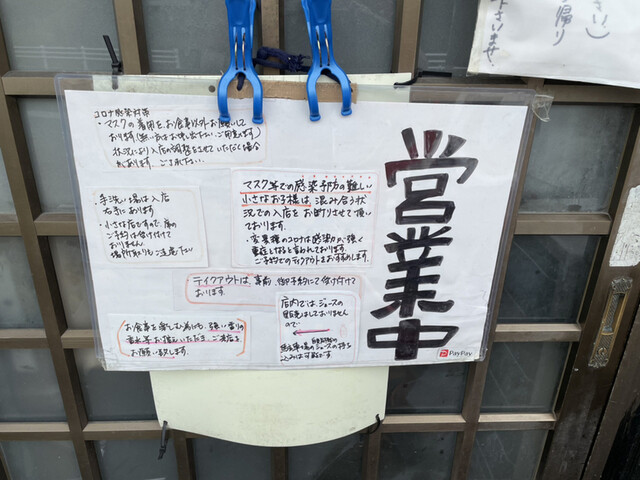 さい)
お帰り
下さいませ。
コロナ感染対策
・マスクの着用を、お食事以外お願いして
おります(無い方はお申し出下さい。ご用意します)
状況により入店の調整をさせていただく場合
があります。ご了承下さい。
・手洗い場は入店
右手にあります
・小さな店ですので、席の
ご予約は受け付けて
おりません
場所取りもご遠慮下さい
マスク等での感染予防の難しい
小さなお子様は、混み合う状
況での入店をお断りさせて頂い
ております。
・変異種のコロナは感染力が強く
重症となると言われております。
ご予約でのテイクアウトをおすすめします。
テイクアウトは、事前、御予約にて受け付けて
おります。
お食事を楽しむ為にも、強い香りの
香水等お控えいただき、ご来店を
お願い致します。
店内ではジュースの
販売しましておりません
ので
のジュースの持ち
込みは可能です
営業中
PayPay